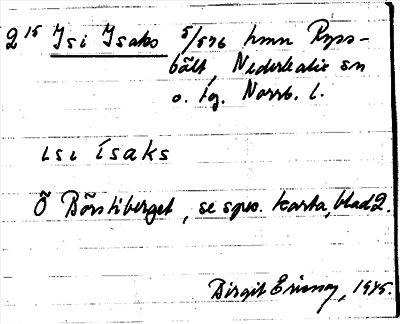 2 15 Isi Isaks 5/576 hmn Ryss-
bält, Nederkalix sn
o. tg. Norrb. l.
ısı ísaks
Ö Börstiberget, se spec. karta, blad 2.
Birgit Ericson, 1945.